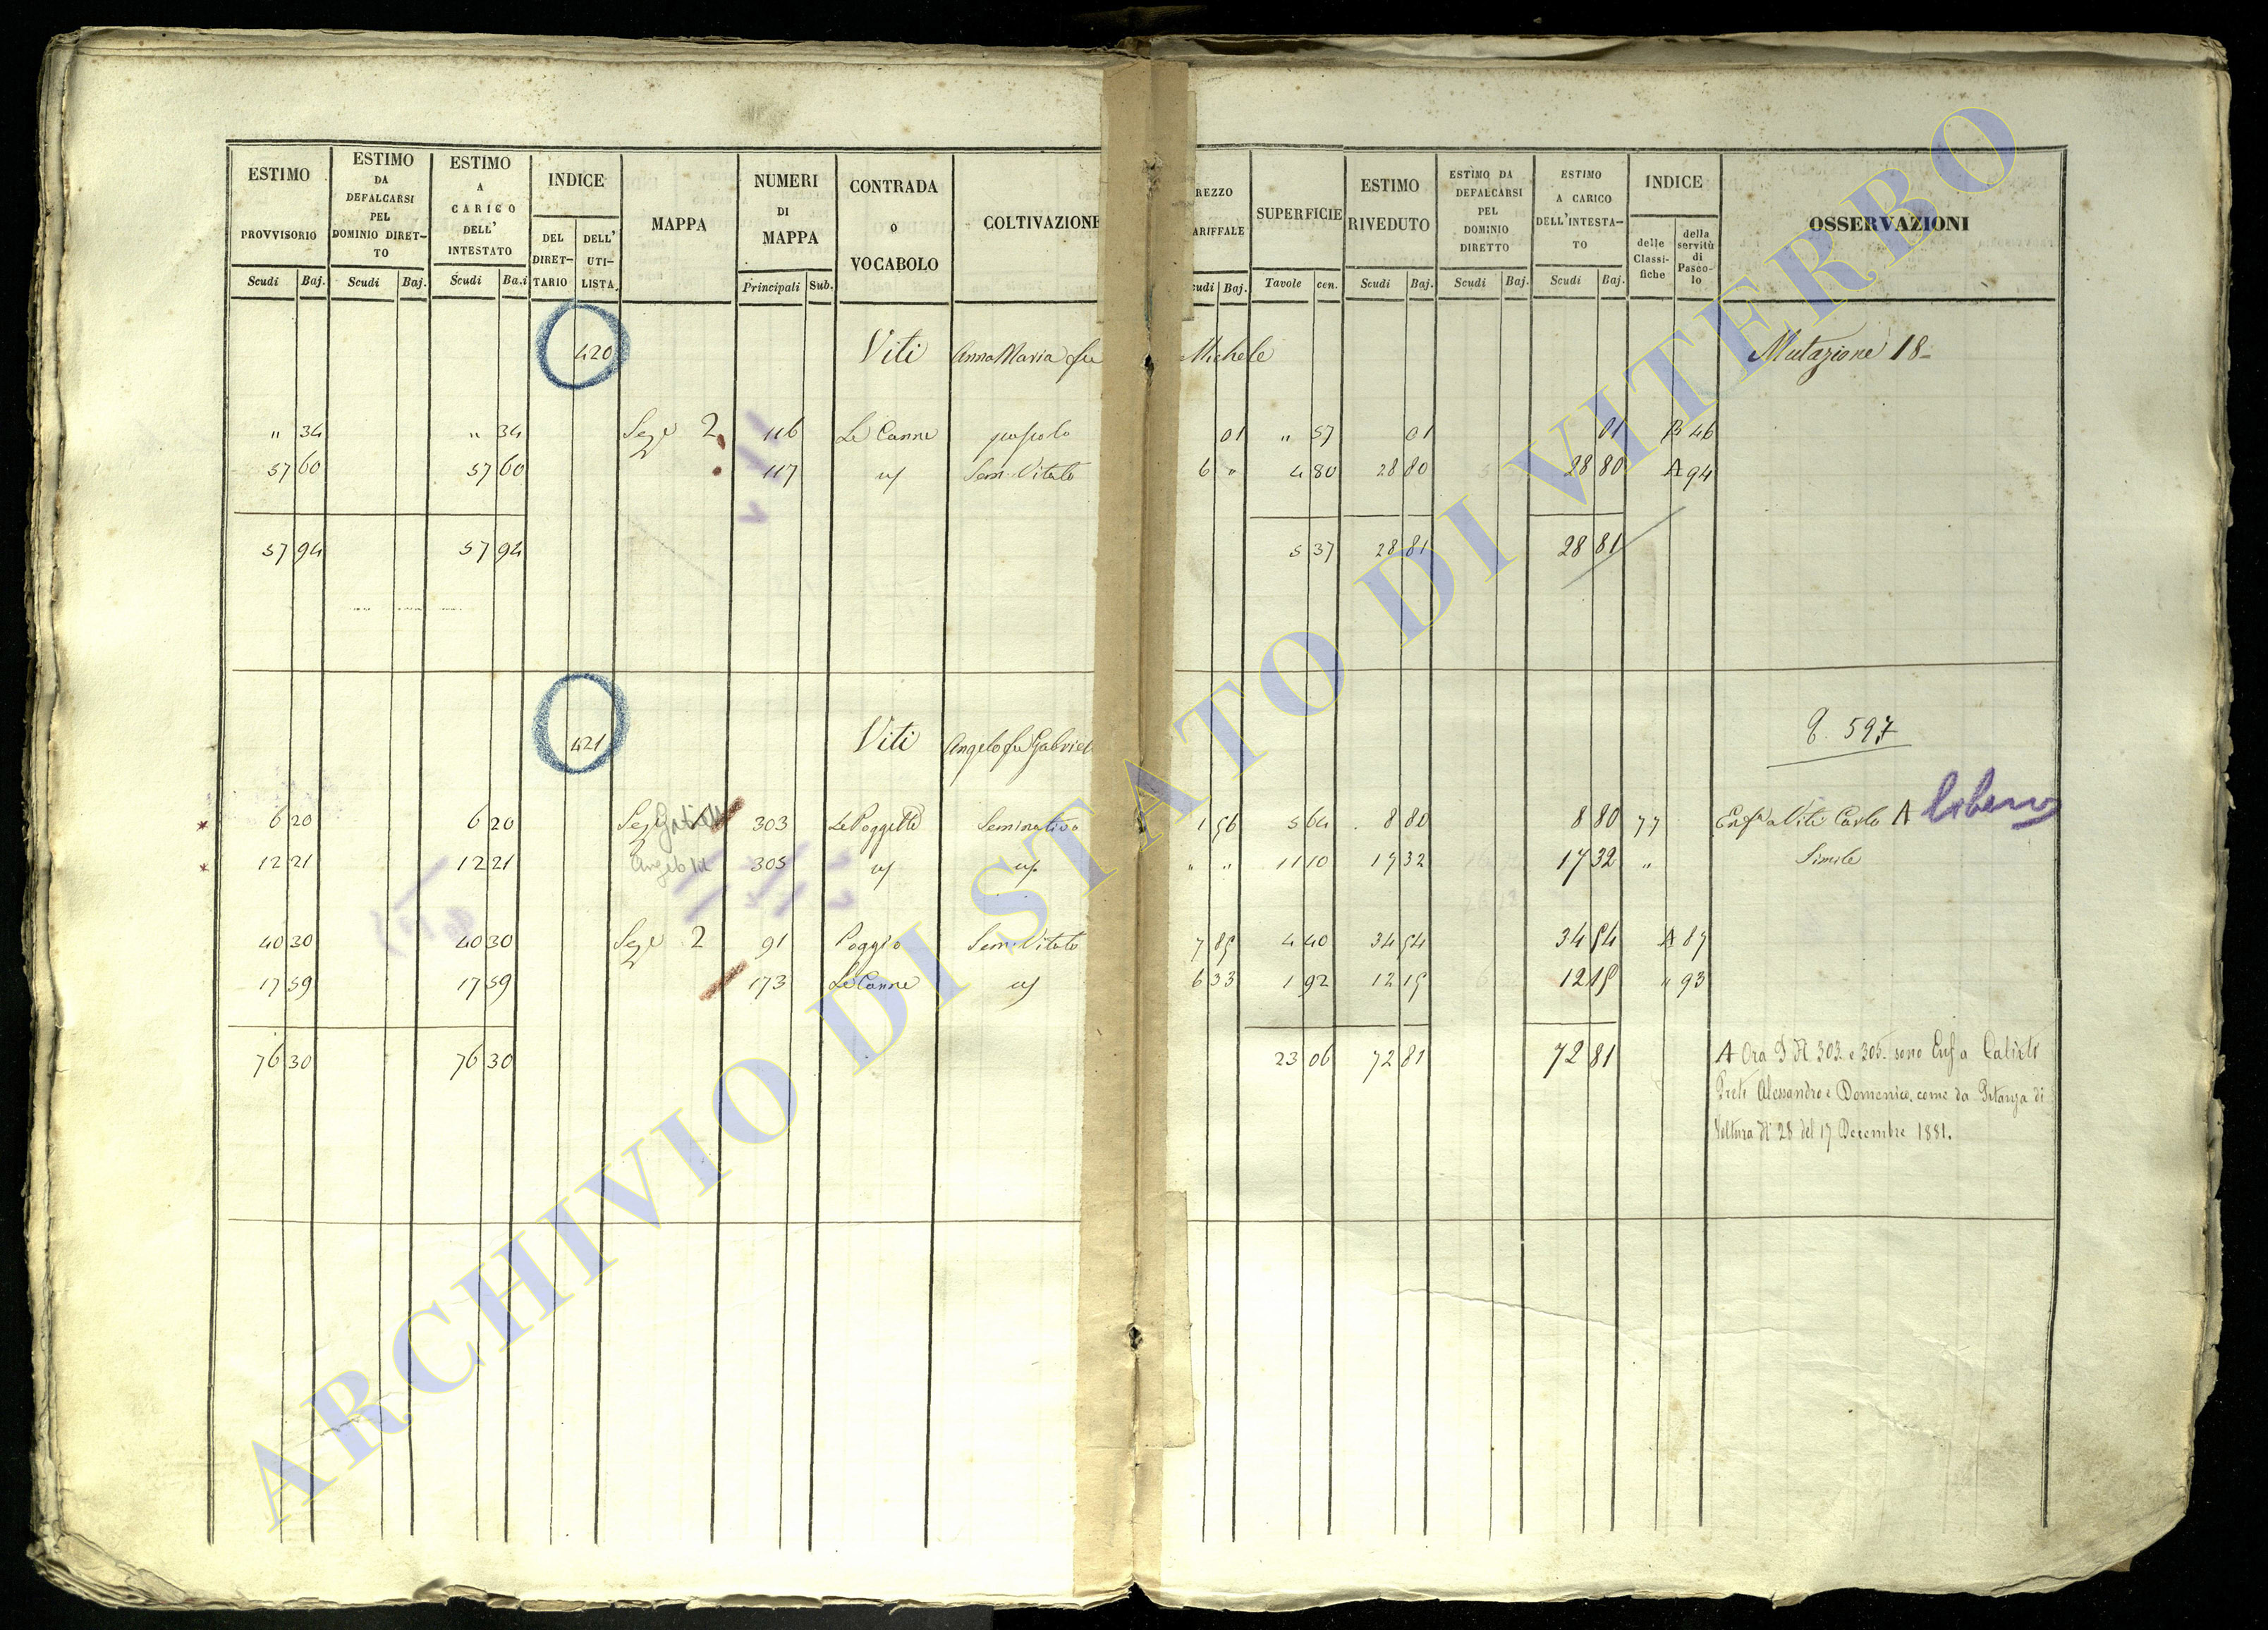 ESTIMO PROVVISORIO
ESTIMO DA DEFALCARSI PEL DOMINIO DIRET-TO
ESTIMO A CARICO DELL' INTESTATO
INDICE
DEL DIRET-TARIO
DELL' UTI-LISTA
MAPPA
NUMERI DI MAPPA
CONTRADA O VOCABOLO
COLTIVAZIONE
REZZO ARIFFALE
SUPERFICIE
ESTIMO RIVEDUTO
ESTIMO DA DEFALCARSI PEL DOMINIO DIRETTO
ESTIMO A CARICO DELL'INTESTA-TO
INDICE
delle Classi-fiche
della servitù di Pasco-lo
OSSERVAZIONI
Scudi Baj. Scudi Baj. Scudi Baj. Principali Sub. udi Baj. Tavole cen. Scudi Baj. Scudi Baj. Scudi Baj.
420 Viti Anna Maria fu Michele Mutazione 18
" 34 " 34 Seze 2 116 Le Canne pascolo 01 " 57 01 01 B 46
57 60 57 60 117 Sem. Vitato 6 " 4 80 28 80 28 80 A 94
57 94 57 94 5 37 28 81 28 81
421 Viti Angelo fu Gabriele 597
6 20 6 20 303 Le Poggette Seminativo 1 56 5 64 8 80 8 80 77 Enfa a Viti Carlo A libero
12 21 12 21 Angelo 305 " " 11 10 17 32 17 32 " Simile
40 30 40 30 Seze 2 91 Poggio Sem. Vitato 7 85 4 40 34 54 34 54 A 87
17 59 17 59 173 Le Canne 6 33 1 92 12 15 12 15 " 93
76 30 76 30 23 06 72 81 72 81
A Ora I N. 303 e 305 sono Enf. a
Preti Alessandro e Domenico, come da Istanza di
Voltura N. 28 del 17 Decembre 1881.
ARCHIVIO DI STATO DI VITERBO